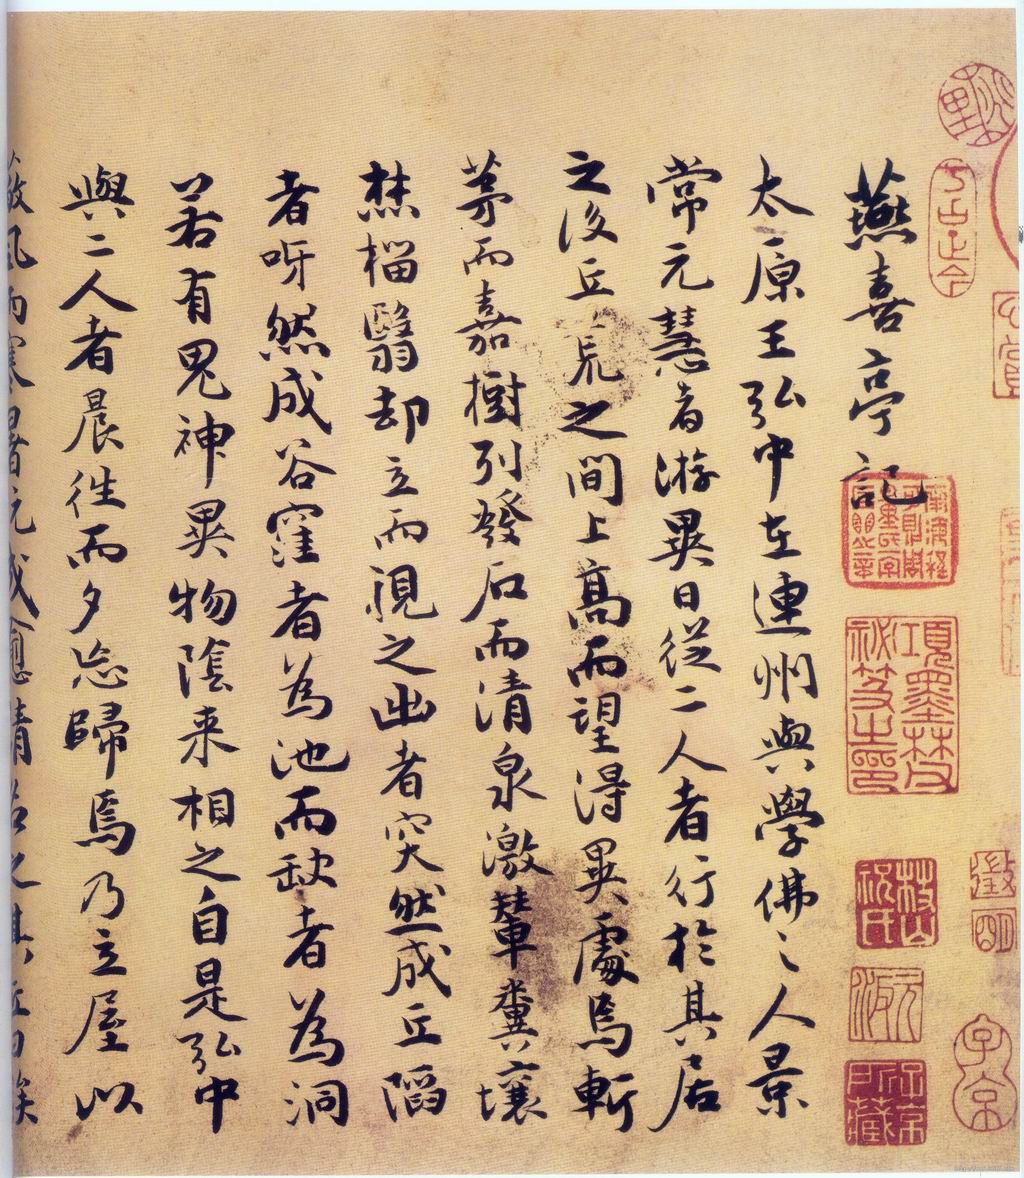 燕喜亭記
太原王弘中在連州與學佛〻人景
常元慧者游異日從二人者行於其居
之後丘荒之間上高而望得異處焉斬
茅而嘉樹列發石而清泉激輦糞壤
焚椔翳却立而視之出者突然成丘陷
者呀然成谷窪者為池而缺者為洞
若有鬼神異物陰来相之自是弘中
與二人者晨往而夕忘歸焉乃立屋以
風雨寒暑成愈請名之其丘曰俟
項墨林父祕笈之印
子京所藏
徵明
子京